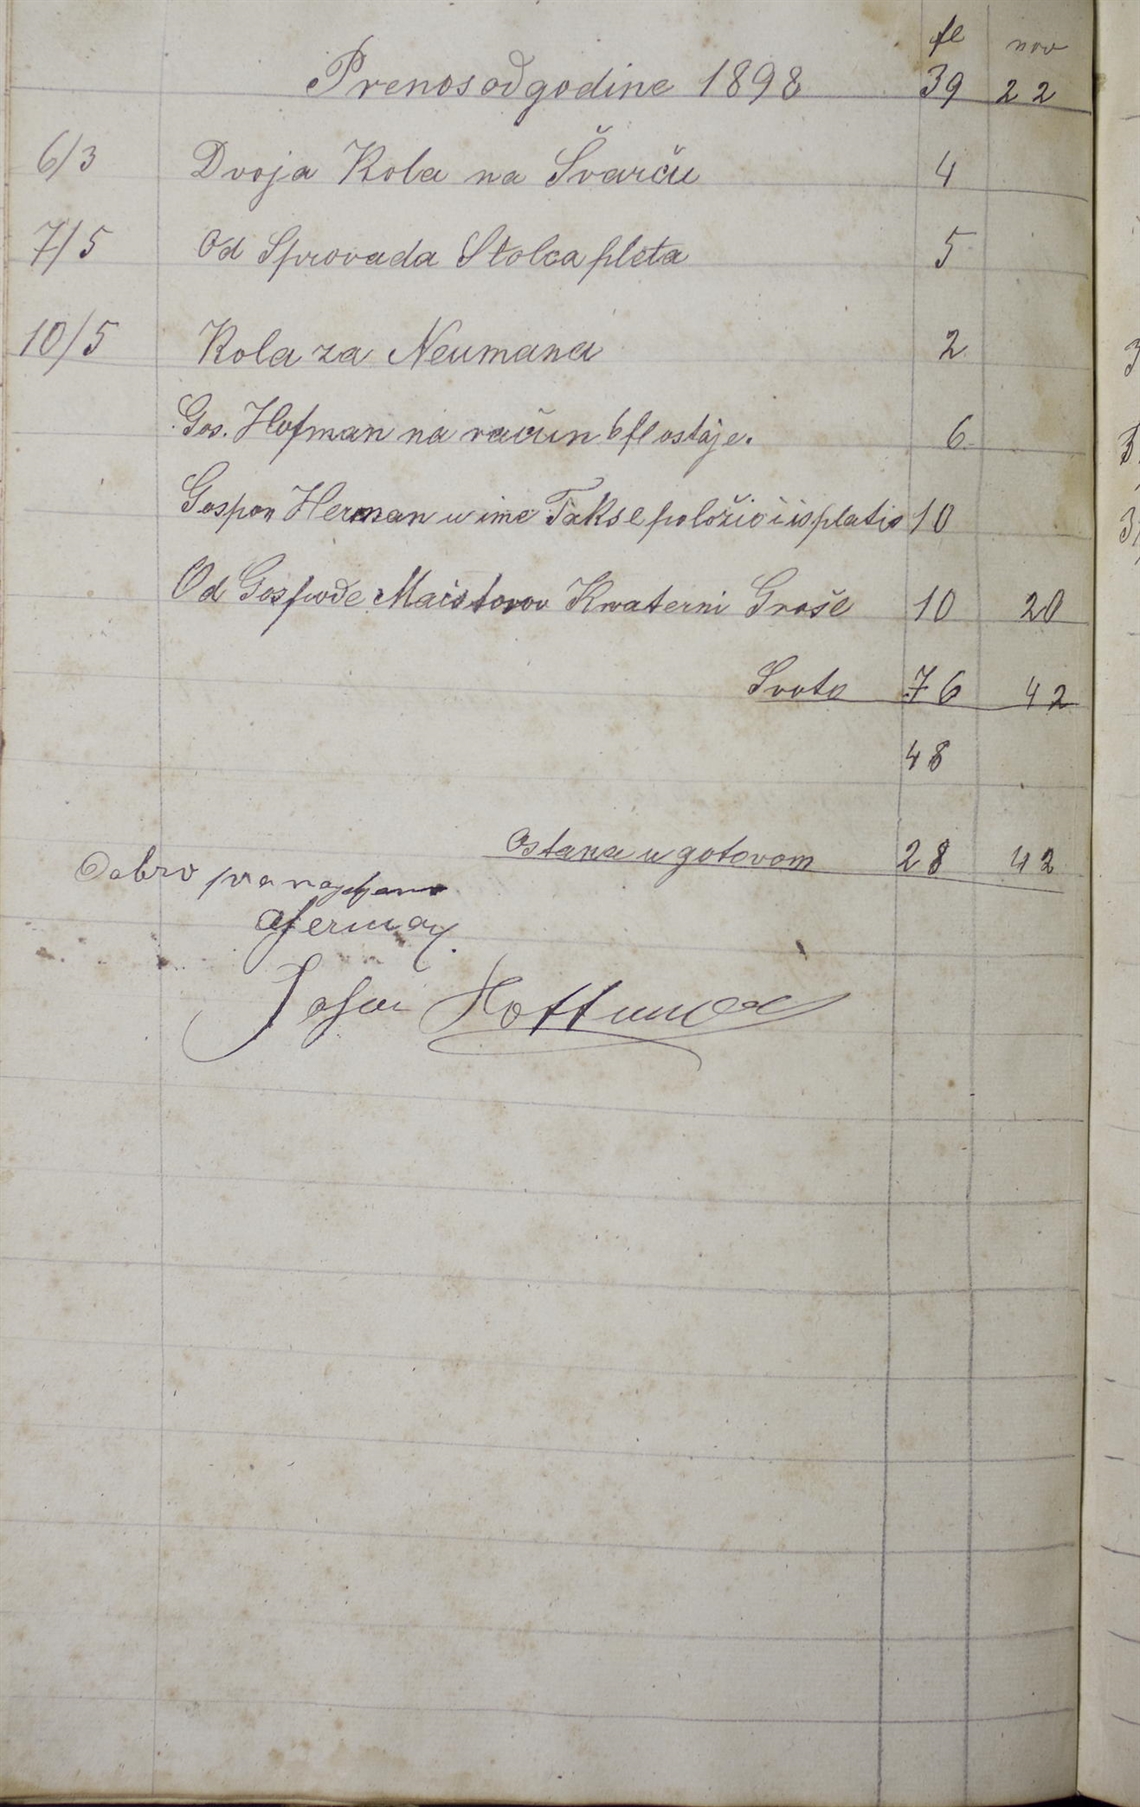 fl nov
Prenos od godine 1898 39 22
6/3 Dvoja Kola na Švarču 4
7/5 Od Sprovada Stolca pleta 5
10/5 Kola za Neumana 2
Gos. Hofman na račun 6 fl ostaje. 6
Gospon Herman u ime Takse položio i isplatio 10
Od Gospode Maistorov Kvaterni Groše 10 20
Svota 76 42
48
Ostana u gotovom 28 42
Dobro pronagjeno